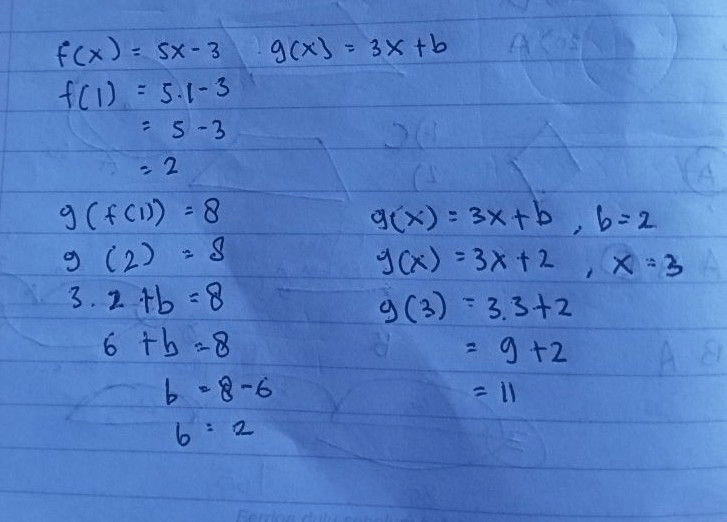 f(x) = 5x - 3 g(x) = 3x + b
f(1) = 5.1 - 3
= 5 - 3
= 2
g(f(1)) = 8
g (2) = 8
3. 2 + b = 8
6 + b = 8
b = 8 - 6
b = 2
g(x) = 3x + b , b = 2
g(x) = 3x + 2 , x = 3
g(3) = 3.3 + 2
= 9 + 2
= 11